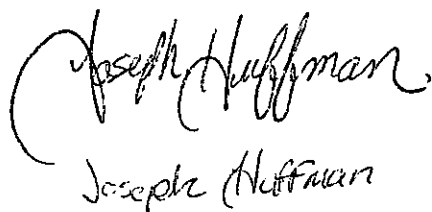 Joseph Huffman
Joseph Huffman